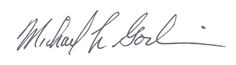 Michael L Gordin